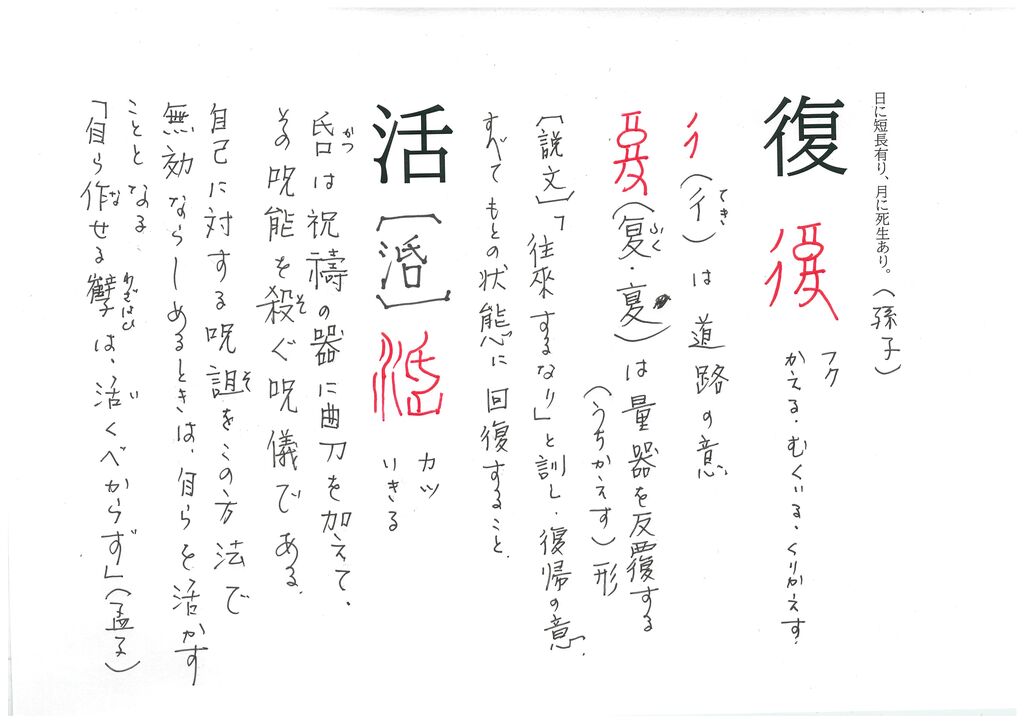 日に短長有り、月に死生あり。(孫子)
復 復 フク
かえる・むくいる・くりかえす.
彳(彳)は道路の意
てき
复(复・夏)は量器を反覆する
ふく
(うちかえす)形
〔説文〕「往来するなり」と訓し.復帰の意.
すべてもとの状態に回復すること.
活〔𣴠〕活 カツ
いきる
氏口は祝禱の器に曲刀を加えて、
かつ
その呪能を殺ぐ呪儀である.
そ
自己に対する呪詛をこの方法で
そ
無効ならしめるときは、自らを活かす
こととなる.
「自ら作せる孼は、活くべからず」(孟子)
な わざはひ い